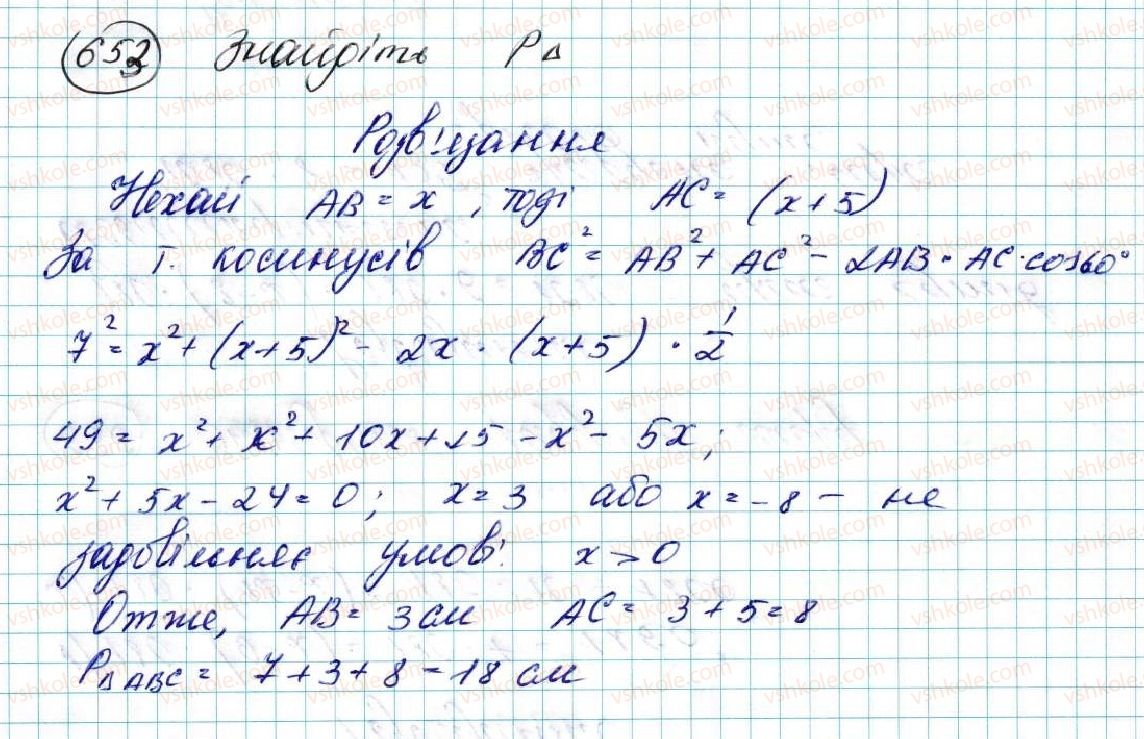 653 Знайдіть P△
Розв'язання
Нехай AB = x, тоді AC = (x+5)
За т. косинусів BC² = AB² + AC² - 2AB · AC · cos60°
7² = x² + (x+5)² - 2x · (x+5) · 1/2
49 = x² + x² + 10x + 25 - x² - 5x;
x² + 5x - 24 = 0; x = 3 або x = -8 - не
задовільняє умові x > 0
Отже, AB = 3 см AC = 3 + 5 = 8
P△ABC = 7 + 3 + 8 = 18 см